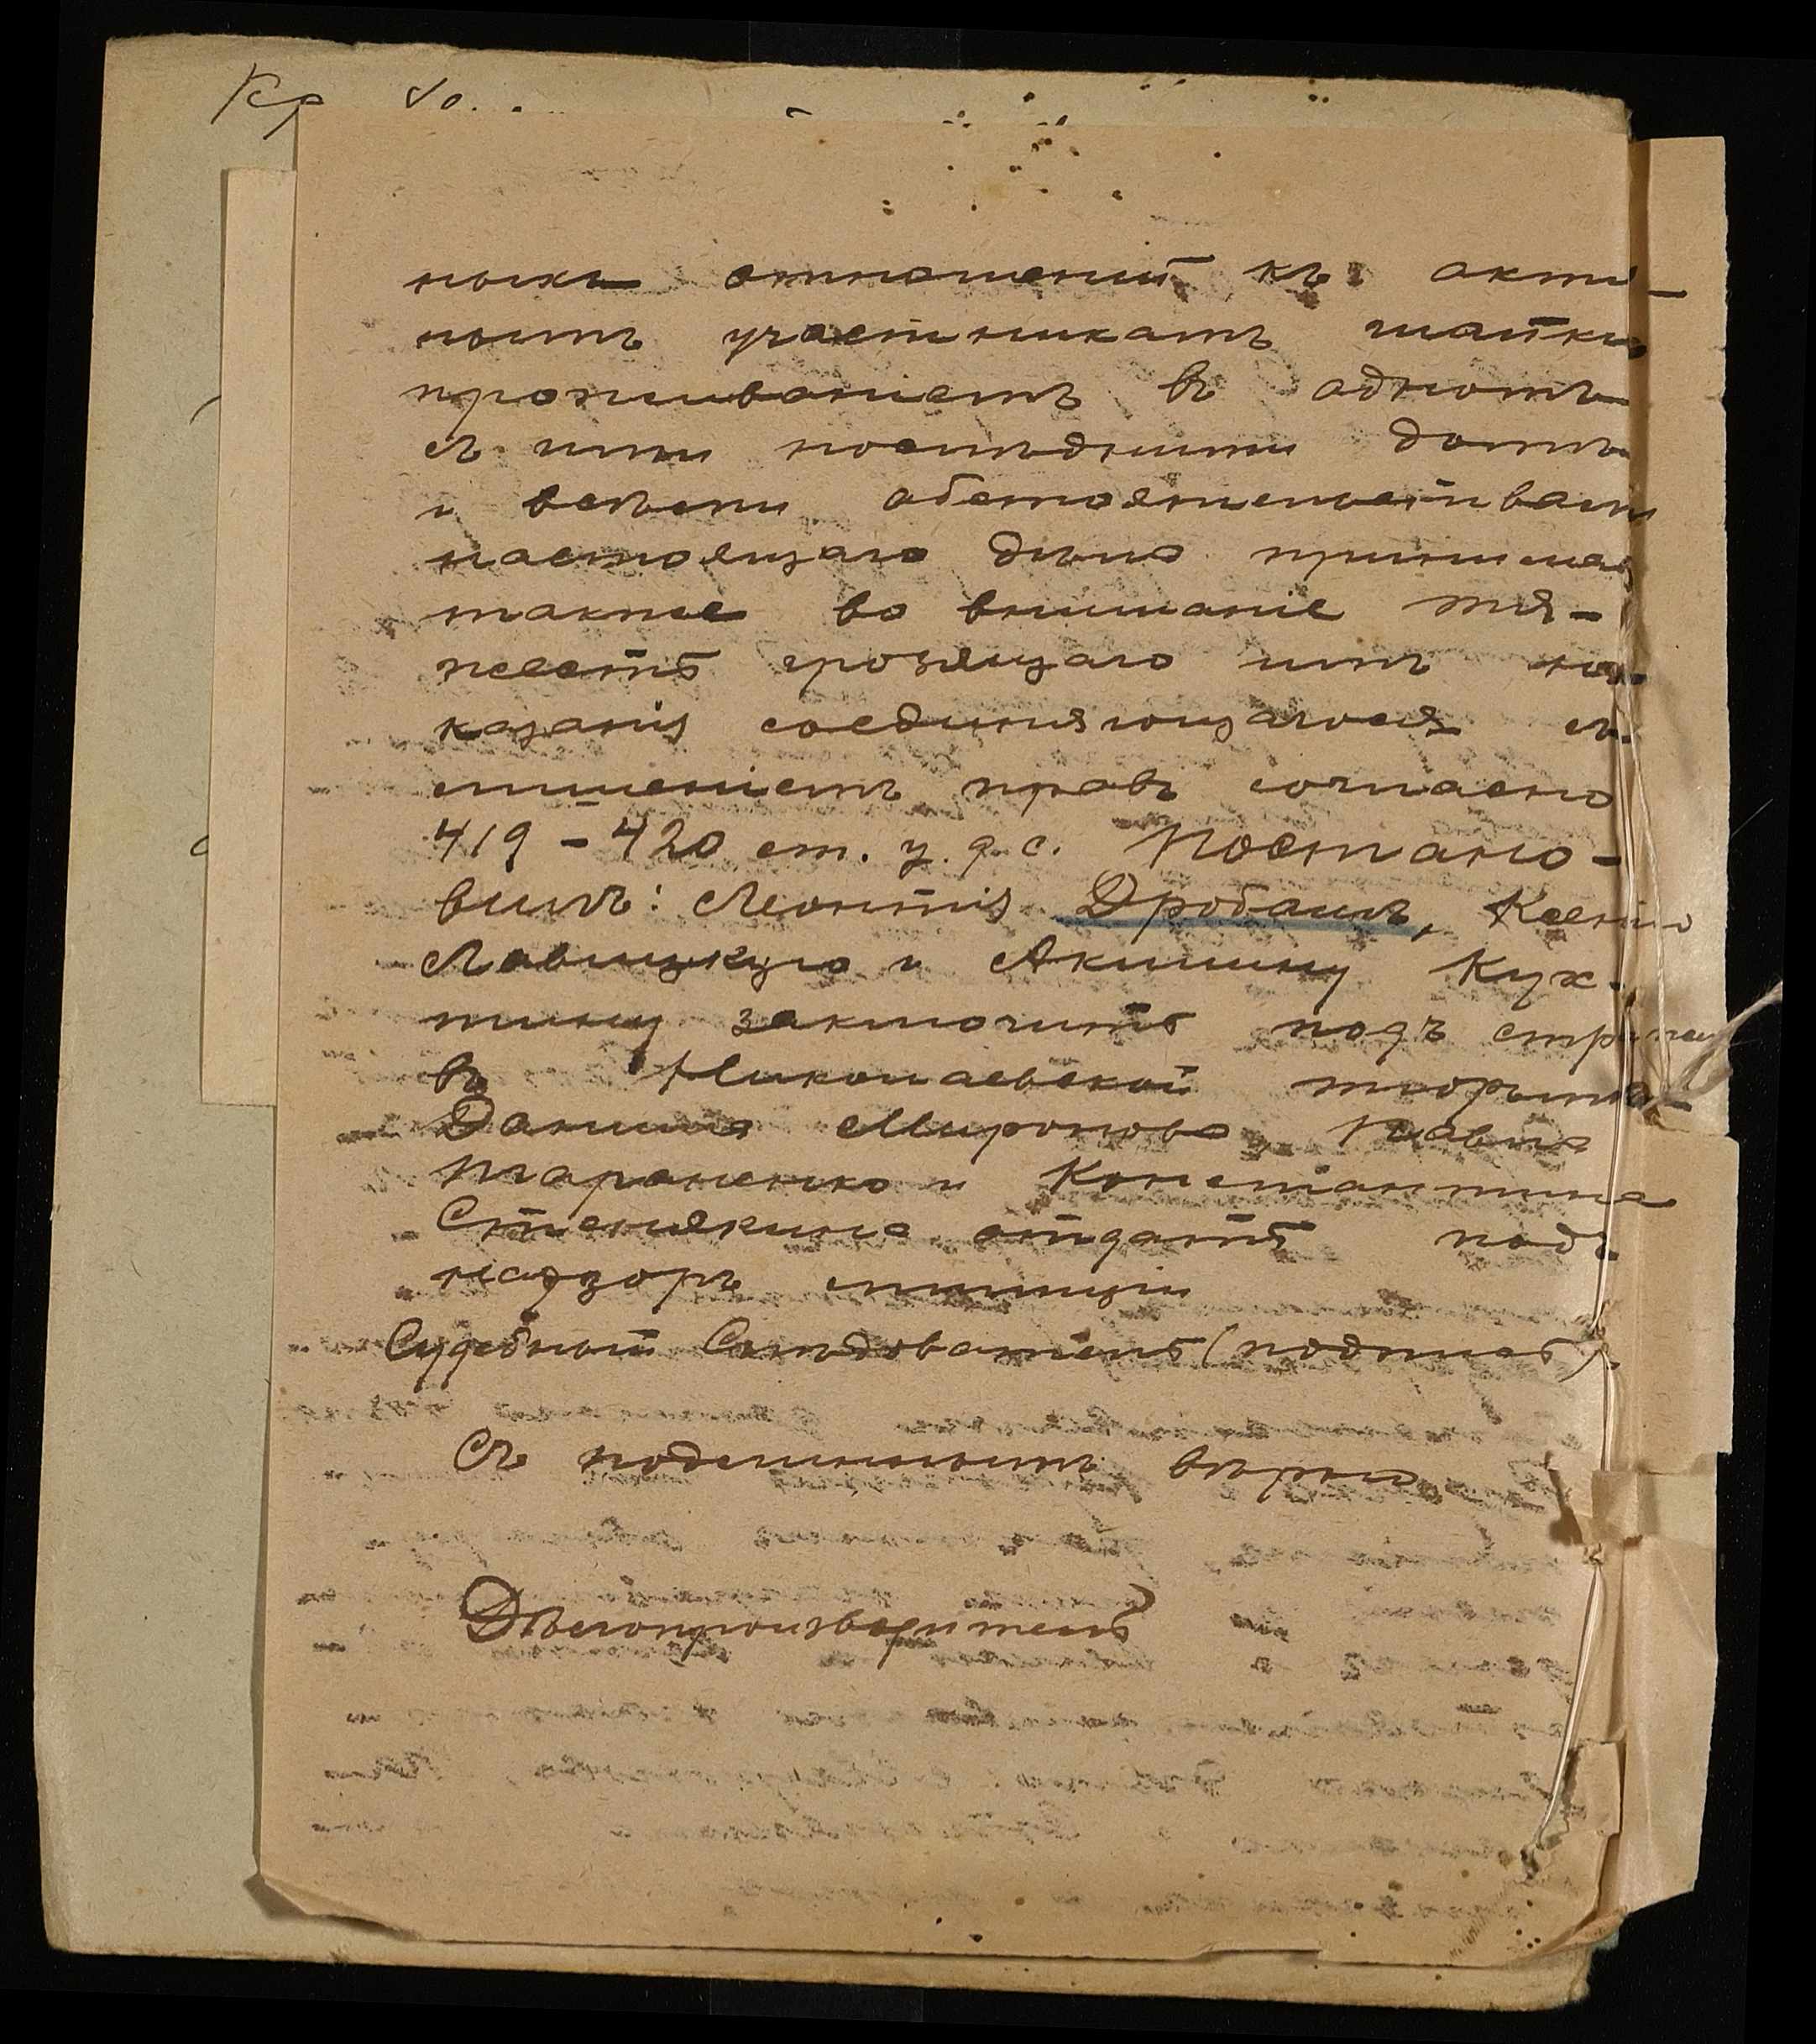 ныхъ отношеній къ акти-
нымъ участникамъ шайки
проживаніемъ въ одномъ
съ ними послѣдними домѣ
и всѣми обстоятельствами
настоящаго дѣла принимая
также во вниманіе тя-
жесть грозящаго имъ на-
казанія соединяющагося съ
лишеніемъ правъ согласно
419 - 420 ст. у. у. с. Постано-
вилъ: Леонтія Дробаша, Ксенію
Лавицкую и Акилину Кух-
тину заключить подъ стражу
въ Николаевской тюрьмѣ
Данила Миронова, Павла
Тараненко и Константина
отдать подъ
надзоръ милиціи
Судебный Слѣдователь (подпись).
Съ подлиннымъ вѣрно.
Дѣлопроизводитель